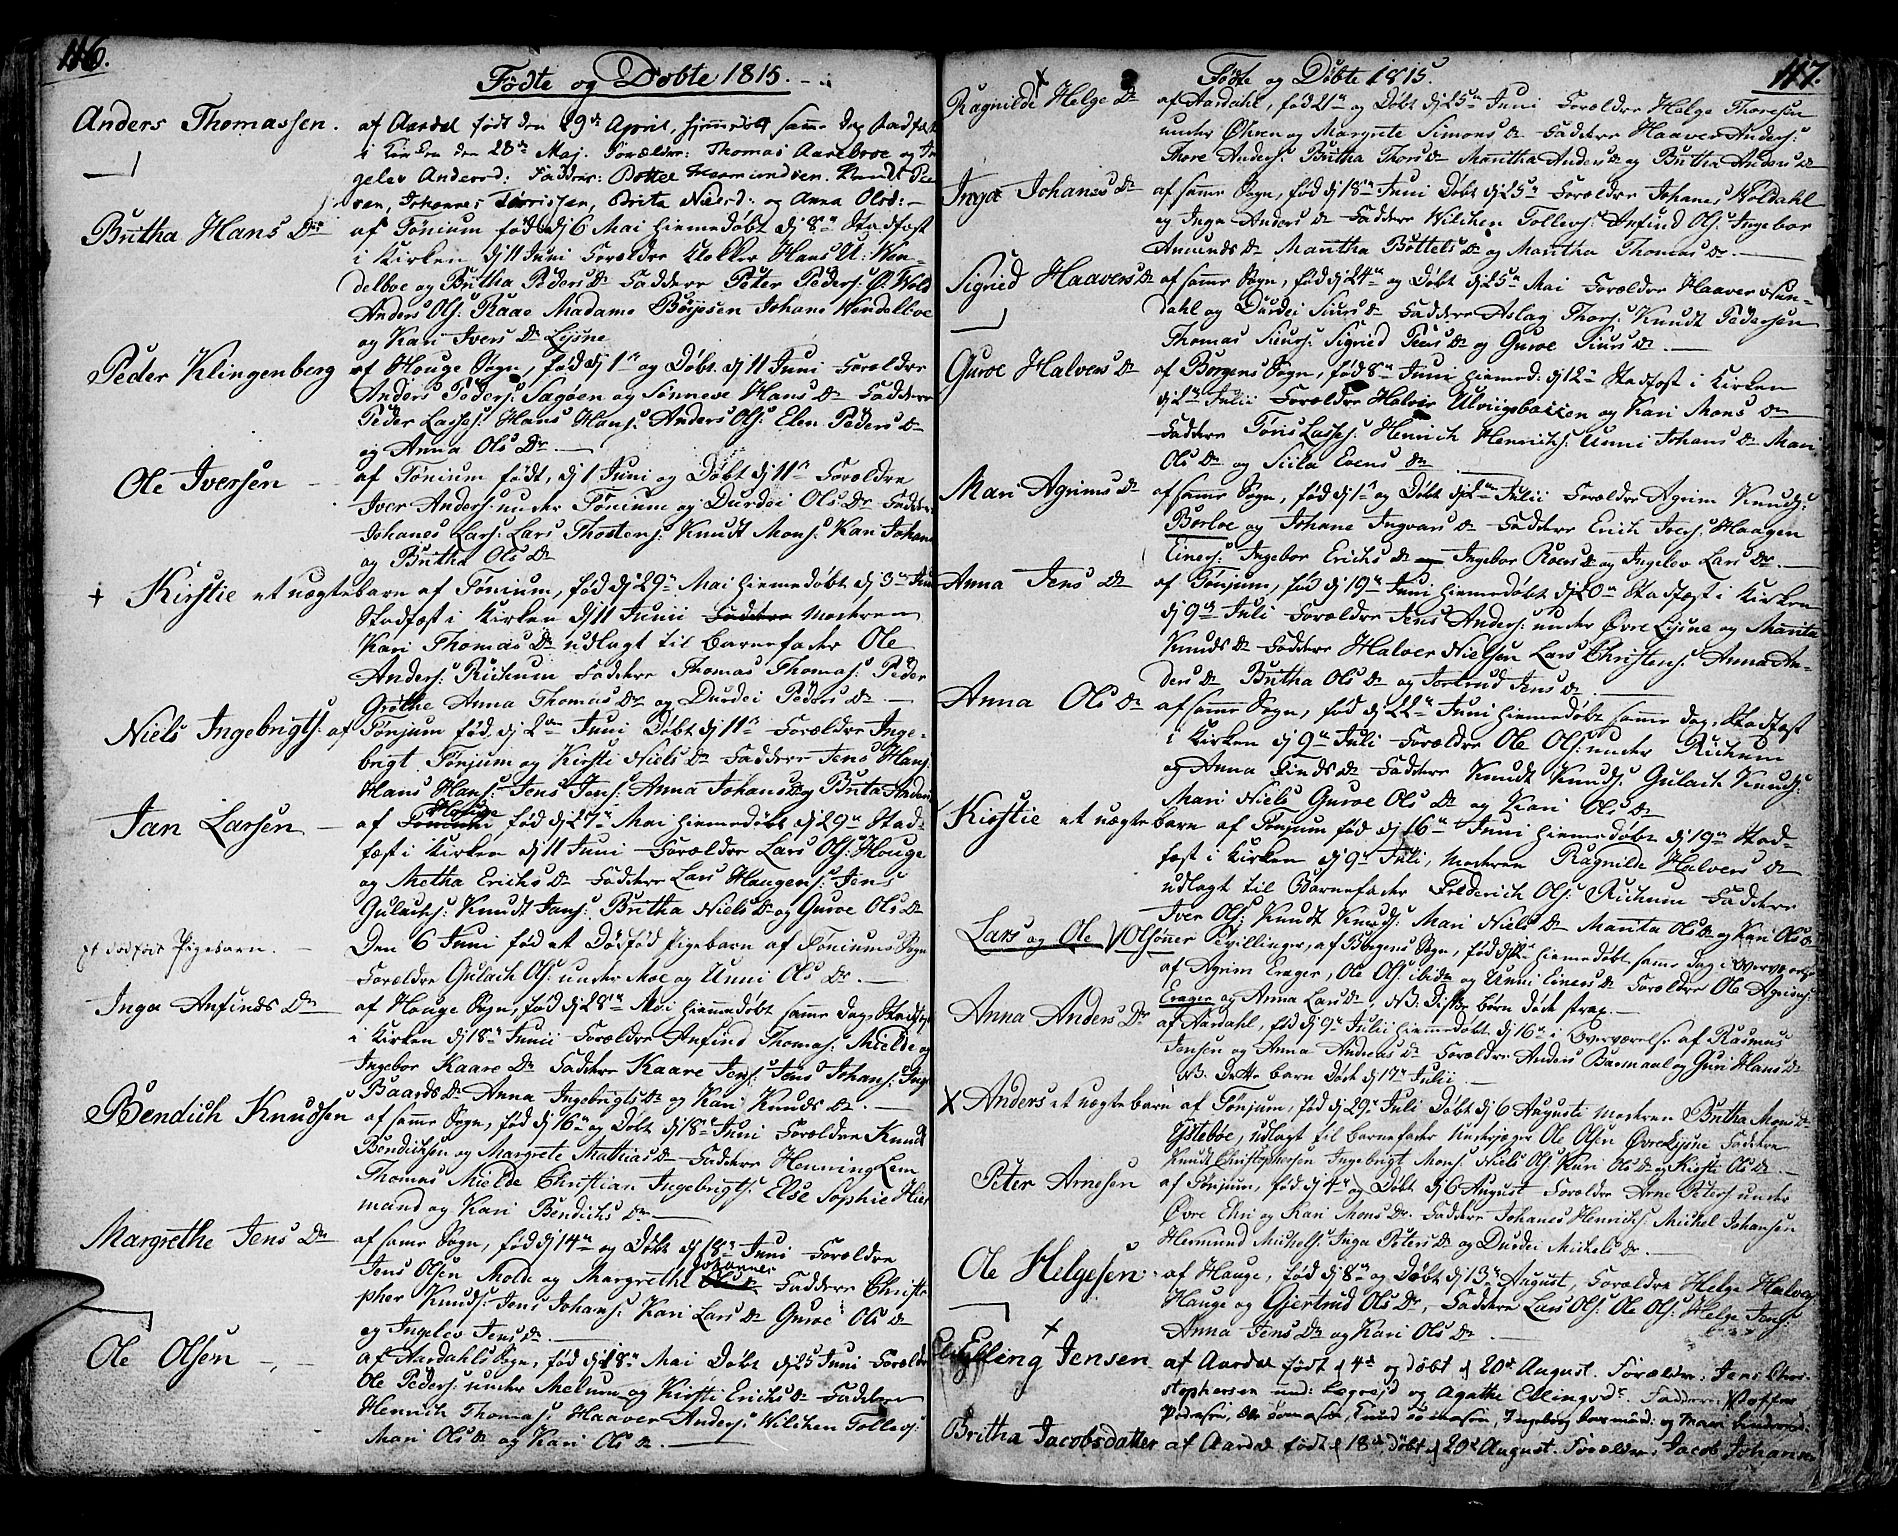 116.
Födte og Döbte 1815.
Anders Thomassen. af Aardal født den 19de April, hjemmedöbt samme dag stadfæst
i Kirken den 28de Maj. Forældre: Thomas Aareboe og In
gelev Andersd: Faddere: Bottel Hermundsen. Knudt Pe
rsen, Johannes Torrissen, Brita Nilsd: og Anna Olsd:
Britha Hans Dr af Tönium fød dj 6 Mai hiemedöbt dj 8de Stadfæst
i Kirken dj 11 Juni Forældre Klokker Hans A: Wen-
delboe og Britha Peders Dr Faddere Peter Peders: Ö: Wold
Anders Ols: Raae Madame Böyesen Johane Wendelboe
og Kari Ivers Dr Lysne
Peder Klingenberg af Houge Sogn, fød dj 1te og Döbt dj 11 Juni Forældre
Anders Peders: Sagöen og Sönneve Hans Dr Faddere
Peder Lasses: Hans Hans: Anders Ols: Elen Peders Dr
og Anna Ols Dr
Ole Iversen af Tönium födt, dj 1 Juni og Döbt dj 11te Forældre
Iver Anders: under Tönium og Durdei Ols Dr Fadder:
Johanes Lars: Lars Thostens: Knudt Mons: Kari Johans
og Britha Ols Dr
+ Kirstie et uægte barn af Tönium, fød dj 29de Mai hiemedöbt dj 3de Juni
Stadfæst i Kirken dj 11 Junii Faddere Moderen
Kari Thomas Dr udlagt til Barnefader Ole
Anders: Richum Faddere Thomas Thomas: Peder
Grethe Anna Thomas Dr og Durdei Peders Dr
Niels Ingebrigts: af Tönjum fød, dj 2den Juni Döbt dj 11te Forældre Inge-
brigt Tönjum og Kirsti Niels Dr Faddere Jens Hans:
Hans Hans: Jens Jens: Anna Johans Dr og Brita Anders
Jan Larsen af Tönium Houge fød dj 27de Mai hiemedöbt dj 29de Stad-
fæst i Kirken dj 11 Juni Forældre Lars Ols: Houge
og Metha Erichs Dr Faddere Lars Haagens: Jens
Gulachs: Knudt Jans: Britha Niels Dr og Guroe Ols Dr
et dödföd Pigebarn. Den 6 Juni fød et Dödfød Pigebarn af Töniums Sogn
Forældre Gulach Ols: under Moe og Unni Ols Dr
Inga Anfinds Dr af Houge Sogn, fød dj 28de Mai hiemedöbt samme dag, Stadfæst
i Kirken dj 18de Junii Forældre Anfind Thomas: Mielde og
Ingebor Kaare Dr Faddere Kaare Jens: Jens Johans: Inge
Baards Dr Anna Ingebrigts Dr og Kari Knuds Dr
Bendich Knudsen af samme Sogn, fød dj 16de og Döbt dj 18de Juni Forældre Knudt
Bendichsen og Margrete Mathias Dr Faddere Henning Lem
Thomas Mielde Christian Ingebrigts: Else Sophie Hier
mand og Kari Bendichs Dr
Margrethe Jens Dr af samme Sogn, fød dj 14de og Döbt dj 18de Juni Forældre
Jens Olsen Molde og Margrethe Ols Dr Johannes Faddere Christo
pher Knuds: Jens Johans: Kari Lars Dr Guroe Ols Dr
og Ingelev Jens Dr
Ole Olsen af Aardahls Sogn, fød dj 18de Mai Döbt dj 25 Juni Forældre
Ole Peders: under Melum og Kirsti Erichs Dr Faddere
Henrich Thomas: Haaver Anders: Wilchen Tolles:
Mari Ols Dr og Kari Ols Dr
117.
Födte og Döbte 1815.
Ragnilde Helge Dr af Aardahl, fød 21de og Döbt dj 25de Juni Forældre Helge Thoresen
under Öhren og Margrete Simons Dr Faddere Haaver Anders:
Thore Anders: Britha Thors Dr Maritha Anders Dr og Britha Anders Dr
Inga Johanes Dr af samme Sogn, fød dj 18de Juni Döbt dj 25de Forældre Johanes Woldahl
og Inga Anders Dr Faddere Wilchen Tolles: Anfind Ols: Ingebor
Amunds Dr Maritha Bottels Dr og Maritha Thomas Dr
Sigrid Haavers Dr af samme Sogn, fød dj 24de og Döbt dj 25de Mai Forældre Haaver Sun-
dahl og Durdei Siurs Dr Faddere Aslag Thors: Knudt Pedersen
Thomas Siurs: Sigrid Peers Dr og Guroe Siurs Dr
Guroe Halvers Dr af Borgens Sogn, fød 8de Juni hiemed: dj 12te Stadfæst i Kirken
dj 2de Julii Forældre Halver Ulvigsbacken og Kari Mons Dr
Faddere Töris Lasses: Henrich Henrichs: Unni Johans Dr Mari
Ols Dr og Siila Evens Dr
Mari Agrims Dr af samme Sogn, fød dj 1te og Döbt dj 2de Julii Forældre Agrim Knuds:
Borloe og Johane Ingvars Dr Faddere Erich Joes: Haagen
Einers: Ingebor Erichs Dr Ingebor Roes Dr og Ingelev Lars Dr.
Anna Jens Dr af Tönjum, fød dj 19de Juni hiemedöbt dj 20de Stadfæst i Kirken
dj 9de Juli Forældre Jens Anders: under Övre Lysne og Marita
Knuds Dr Faddere Halver Nielsen Lars Christens: Anna An-
ders Dr Britha Ols Dr og Jertrud Jens Dr
Anna Ols Dr af samme Sogn, fød dj 22de Juni hiemedöbt samme dag, Stadfæst
i Kirken dj 9de Juli Forældre Ole Ols: under Richum
og Anna Finds Dr Faddere Knudt Knuds: Gulach Knuds:
Mari Niels Guroe Ols Dr og Kari Ols Dr
Kirstie et uægte barn af Tönjum fød dj 16de Juni hiemedöbt dj 19de Stad-
fæst i Kirken dj 9de Juli, Moderen Ragnilde Halvers Dr
udlagt til Barnefader Friderich Ols: Richum Faddere
Iver Ols: Knudt Knuds: Mari Niels Dr Marita Ols Dr og Kari Ols Dr
Lars og Ole Olsöner Tvillinger, af Borgens Sogn, fød hiemedöbt samme dag i Overværelse
af Agrim Erager, Ole Ols: ibidm og Unni Einers Dr Forældre Ole Agrims:
Erager og Anna Lars Dr. NB. Disse börn döde strax.
Anna Anders Dr af Aardahl, fød dj 9de Julii hiemmedöbt dj 16de i Overværelse af Rasmus
Jensen og Anna Andreas Dr Forældre Anders Baemaal og Guri Hans Dr
NB. Dette barn Döde dj 17de Julii
X Anders et uægte barn af Tönjum, fød dj 29de Juli Döbt dj 6 Augusti Moderen Britha Mons Dr
Ystebøe, udlagt til Barnefader Underjæger Ole Olsen Övre Lysne Faddere
Knudt Christophersen Ingebrigt Mons: Niels Ols: Kari Ols Dr og Kirsti Ols Dr.
Peter Arnesen af Tönjum, fød dj 4de og Döbt dj 6 August Forældre Arne Peters: under
Övre Ehri og Kari Mons Dr. Faddere Johanes Henrichs: Michel Johansen
Hermund Michels: Inga Peters Dr og Durdei Michels Dr.
Ole Helgesen af Hauge, fød dj 8de og Döbt dj 13de August, Forældre Helge Halvers:
Hauge og Gjertrud Ols Dr, Faddere Lars Ols: Ole Ols: Helge Jens:
Anna Jens Dr og Kari Ols Dr
Elling Jensen af Aardal födt d 4de og döbt d 20de August. Forældre: Jens Chri-
stophersen und: Lægrejd og Agathe Ellingsdr. Faddere:
og Mari
Britha Jacobsdatter af Aardal födt d 18de döbt d 20de August. Forældre: Jacob Johansen